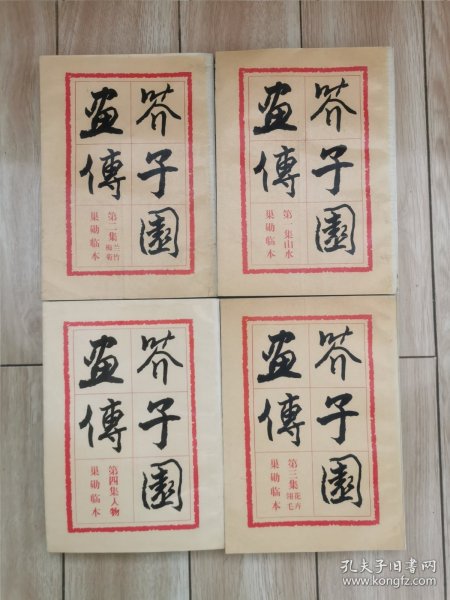 芥子園
畫傳
第二集兰竹梅菊
巢勋临本
芥子園
畫傳
第一集山水
巢勋临本
芥子園
畫傳
第四集人物
巢勋临本
芥子園
畫傳
第三集花卉翎毛
巢勋临本
孔夫子旧书网
www.kongfz.com